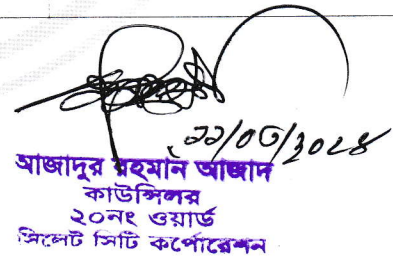 ১১/০৩/২০২৪
আজাদুর রহমান আজাদ
কাউন্সিলর
২০নং ওয়ার্ড
সিলেট সিটি কর্পোরেশন